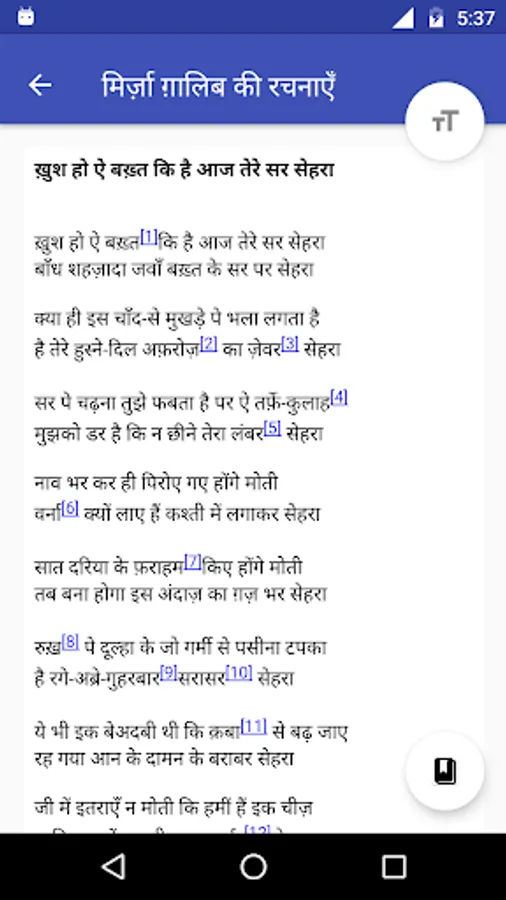 5:37
मिर्ज़ा ग़ालिब की रचनाएँ
TT
ख़ुश हो ऐ बख़्त कि है आज तेरे सर सेहरा
ख़ुश हो ऐ बख़्त[1]कि है आज तेरे सर सेहरा
बाँध शहज़ादा जवाँ बख़्त के सर पर सेहरा
क्या ही इस चाँद-से मुखड़े पे भला लगता है
है तेरे हुस्ने-दिल अफ़रोज़[2] का ज़ेवर[3] सेहरा
सर पे चढ़ना तुझे फबता है पर ऐ तर्फ़े-कुलाह[4]
मुझको डर है कि न छीने तेरा लंबर[5] सेहरा
नाव भर कर ही पिरोए गए होंगे मोती
वर्ना[6] क्यों लाए हैं कश्ती में लगाकर सेहरा
सात दरिया के फ़राहम[7]किए होंगे मोती
तब बना होगा इस अंदाज़ का ग़ज़ भर सेहरा
रुख़[8] पे दूल्हा के जो गर्मी से पसीना टपका
है रगे-अब्रे-गुहरबार[9]सरासर[10] सेहरा
ये भी इक बेअदबी थी कि क़बा[11] से बढ़ जाए
रह गया आन के दामन के बराबर सेहरा
जी में इतराएँ न मोती कि हमीं हैं इक चीज़
[12]